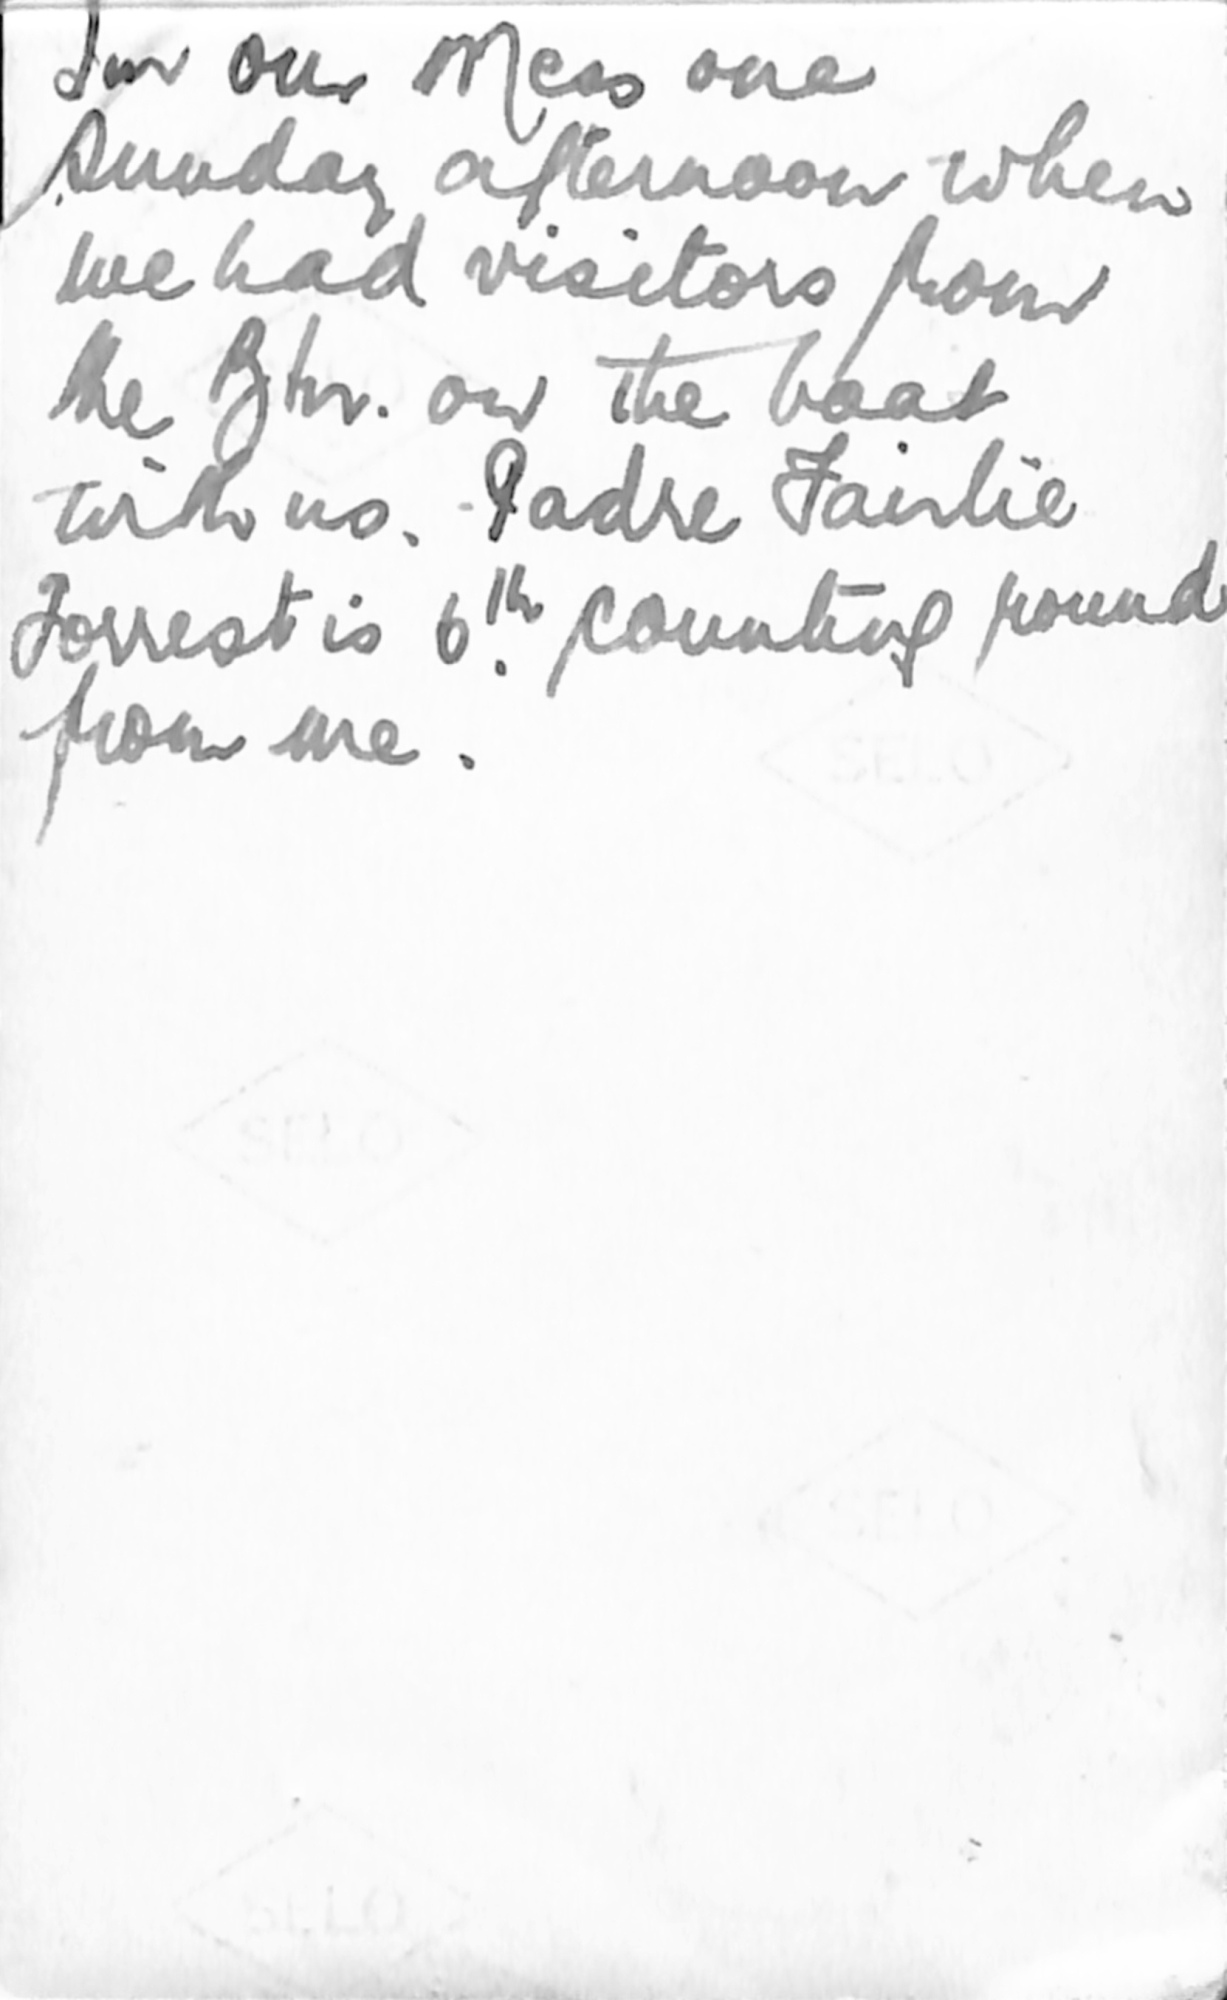 In our Mess one
Sunday afternoon when
we had visitors from
the Btn. on the boat
with us. Padre Fairlie
Forrest is 6th counting round
from me.